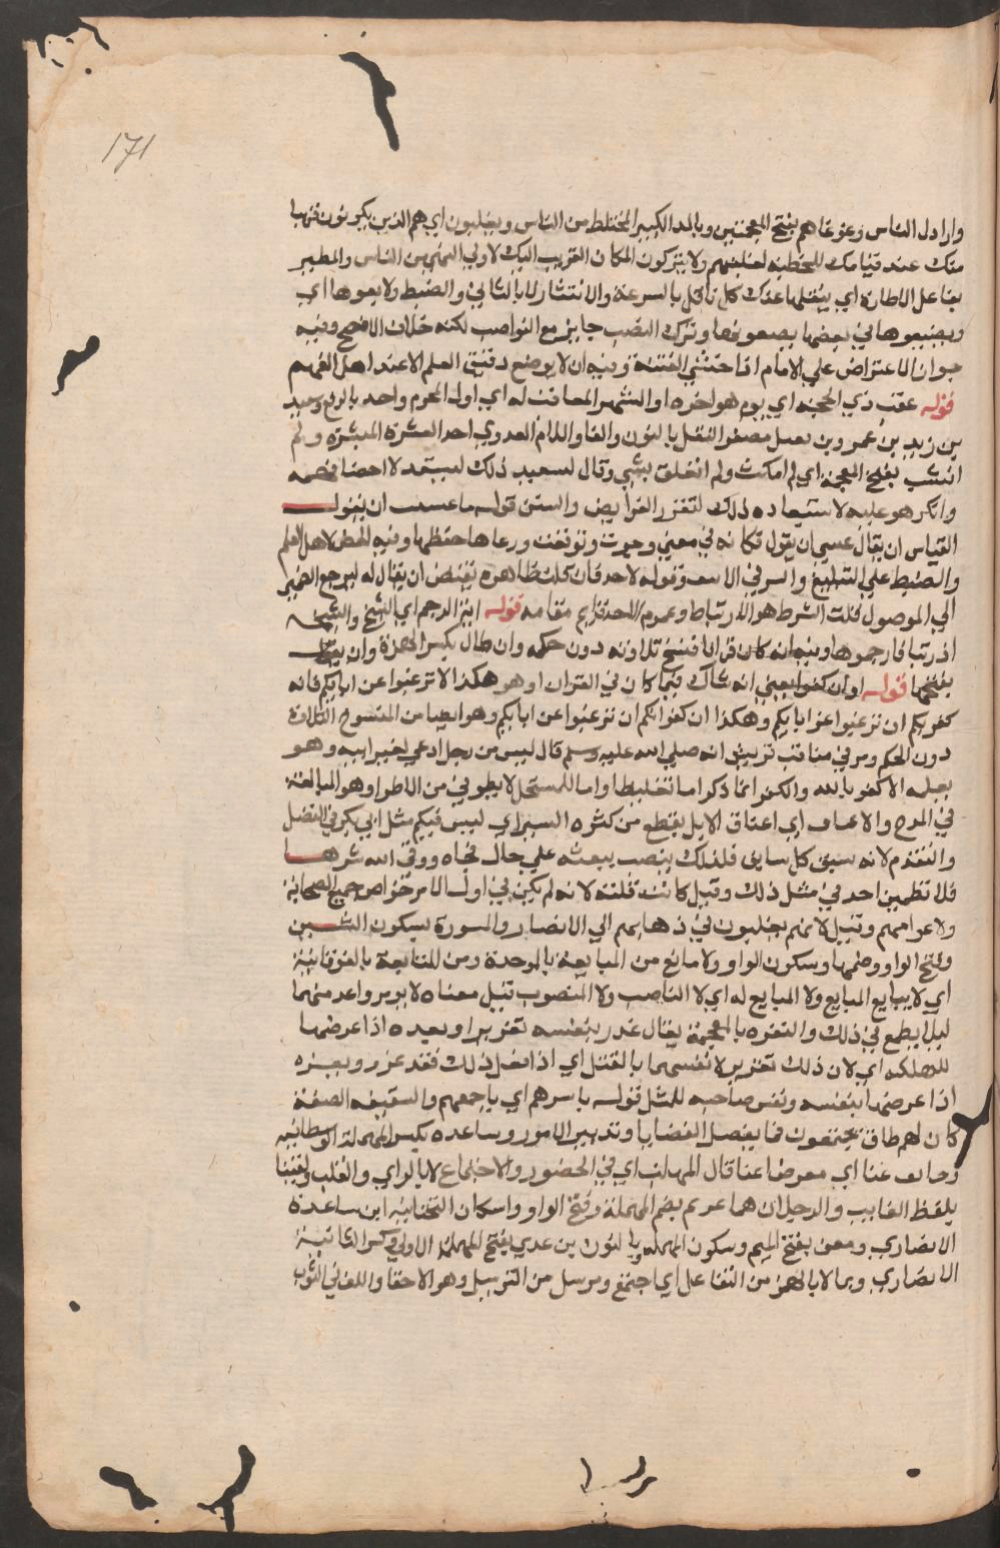 171
واراذل الناس وغوغاهم بفتح المعجمتين وبالمد الكبير المختلط من الناس ويغلبون اي هم الذين يكونون قريبا
منك عند قيامك للخطبة لغلبتهم ولا يتركون المكان القريب اليك لاولي النهى من الناس والمطير
بفاعل الاطارة اي ينقلها عنك كل ناقل بالسرعة والانتشار لا بالتاني والضبط ولا يعوها اي
ويضيعوها في بعضها يضعونها وترك النصب جايز مع النواصب لكنه خلاف الافصح وفيه
جواز الاعتراض علي الامام اذا خشي الفتنة وفيه ان لا يوضع دقيق العلم الا عند اهل الفهم
قوله عقب ذي الحجة اي يوم هو اخره او الشهر المعاقب له اي اول المحرم واحد بالرفع وسعيد
بن زيد بن عمرو بن نفيل مصغر النفل بالنون والفا واللام العدوي احد العشرة المبشرة ولم
انشب بفتح المعجمة اي لم امكث ولم اتعلق بشي وقال لسعيد ذلك ليستعد لاحضار فهمه
وانكر هو عليه لاستبعاده ذلك لتقرر الفرايض والسنن قوله ما عسيت ان يقول
القياس ان يقال عسى ان يقول فكانه في معنى رجوت وتوقعت ورعاها حفظها وفيه الحض لاهل العلم
والضبط علي التبليغ والسر في الاسف وقوله لاحد فان قلت ظاهره يقتضي ان يقال له ليرجع الضمير
الي الموصول قلت الشرط هو الارتباط وعموم الاحد قايم مقامه قوله اية الرجم اي الشيخ والشيخة
اذا زنيا فارجموها وفيه انه كان قرانا فنسخ تلاوته دون حكمه وان طال بكسر الهمزة وان يقول
بفتحها قوله او ان كفرا يعني انه شاك فيما كان في القران او هو هكذا لا ترغبوا عن ابايكم فانه
كفر بكم ان ترغبوا عن ابايكم وهكذا ان كفرا بكم ان ترغبوا عن ابايكم وهو ايضا من المنسوخ التلاوة
دون الحكم ومر في مناقب قريش انه صلي الله عليه وسلم قال ليس من رجل ادعى لغير ابيه وهو
يعلمه الا كفر بالله والكفر انما ذكر اما تغليظا واما للمستحل لا يطروني من الاطرا وهو المبالغة
في المدح والاعناق اي اعناق الابل يقطع من كثرة السير اي ليس فيكم مثل ابي بكر في الفضل
والتقدم لانه سبق كل سابق فلذلك بنصب بيعته علي حال فجاه ووقى الله شرها
فلا تطمعن احد في مثل ذلك وقيل كانت فلتة لانه لم يكن في اول الامر خواص جميع الصحابة
ولا عوامهم وقيل لانهم يغلبون في ذهابهم الي الانصار والمشورة بسكون الشين
وفتح الواو وضمها وسكون الواو ولا مانع من المبايعة بالموحدة ومن المتابعة بالفوقانية
اي لا يبايع المبايع ولا المبايع له اي لا الناصب ولا المنصوب قيل معناه لا يومر واحد منهما
ليلا يطمع في ذلك والتغره بالمعجمة يقال غرر بنفسه تغريرا وتغره اذا عرضها
للهلكة اي لان ذلك تغرير لانفسهما بالقتل اي اذا فعل ذلك فقد غرر وبغره
اذا عرضها بنفسه ونفس صاحبه للقتل قوله باسرهم اي باجمعهم والسقيفه الصفة
كان لهم طاق يجتمعون فيها لفصل القضايا وتدبير الامور وساعده بكسر المهملة الوسطانية
وخالف عنا اي معرضا عنا قال المهلب اي في الحضور والاجتماع لا بالراي والقلب ولقينا
بلفظ الغايب والرجلان هما عويم بضم المهملة وفتح الواو واسكان التحتانية ابن ساعدة
الانصاري ومعن بفتح الميم وسكون المهملة وبالنون بن عدي بفتح المهملة الاولي وكسر الثانية
الانصاري وتمالا بالهمز من التفاعل اي اجتمع ومزمل من التزميل وهو الاخفا واللف في الثوب